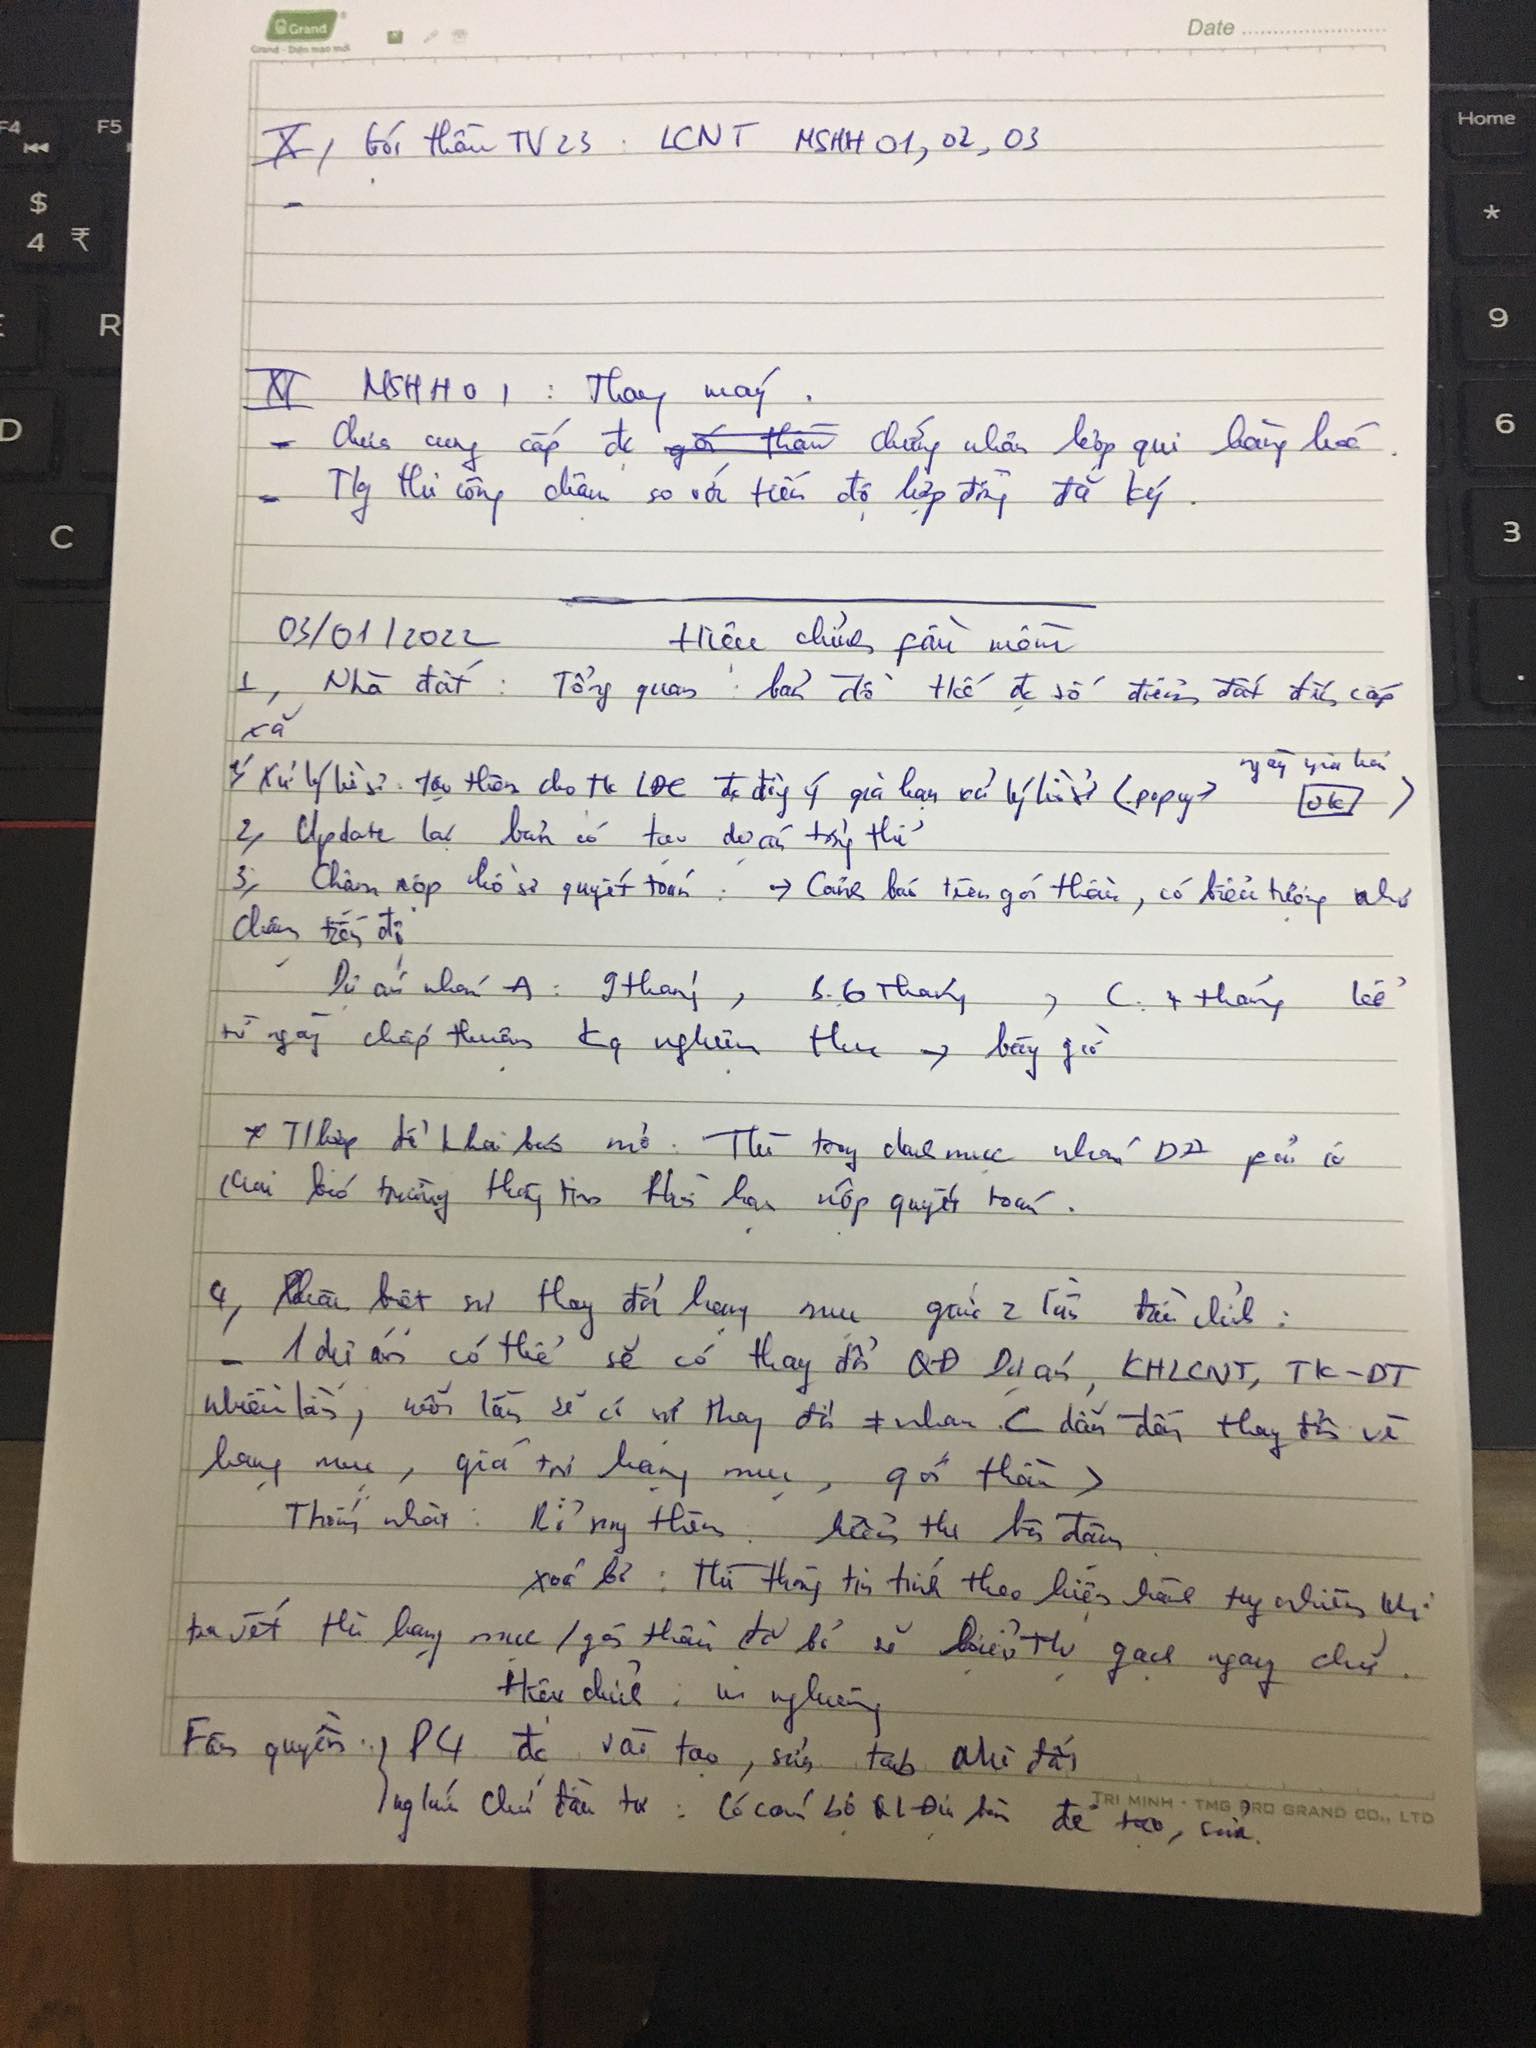 Grand
Grand - Diện mạo mới
Date
X, Gói thầu TV23: LCNT MSHH 01, 02, 03
-
XI MSHH 01: Thang máy.
- Chưa cung cấp đc gói thầu chứng nhận hợp qui hàng hoá.
- T/g thi công chậm so với tiến độ hợp đồng đã ký.
03/01/2022 Hiệu chỉnh fần mềm
1, Nhà đất: Tổng quan: bản đồ thế đc số điểm đất đến cấp
xã
Xử lý hồ sơ: tạo thêm cho TK LĐC đc đồng ý gia hạn xử lý hồ sơ (popup ngày gia hạn OK)
2, Update lại bản có tạo dự án tổng thể
3, Chậm nộp hồ sơ quyết toán: → Cảnh báo trên gói thầu, có biểu tượng như
chậm tiến độ
Dự án nhóm A: 9 tháng, B. 6 Tháng, C. 4 tháng kể
từ ngày chấp thuận kq nghiệm thu → bây giờ
* T/hợp để khai báo mở. Thì trong danh mục nhóm DA fải có
cái trường thông tin thời hạn nộp quyết toán.
4, Phân biệt sự thay đổi hạng mục giữa 2 lần điều chỉnh:
- 1 dự án có thể sẽ có thay đổi QĐ Dự án, KHLCNT, TK-DT
nhiều lần, mỗi lần sẽ có sự thay đổi ≠ nhau (dẫn đến thay đổi về
hạng mục, giá trị hạng mục, gói thầu)
Thống nhất: Bổ sung thêm: hiển thị bôi đậm
xoá bỏ: Thì thông tin tính theo hiện hành tuy nhiên khi
tra vết thì hạng mục/gói thầu đã bỏ sẽ hiển thị gạch ngang chữ.
Hiệu chỉnh: in nghiêng
Fân quyền: P4 đc vào tạo, sửa tab nhà đất
nhóm chủ đầu tư: Có cán bộ QL địa bàn để tạo, sửa.
TRI MINH - TMG PRO GRAND CO., LTD
F4
F5
$
4
₹
E
R
D
C
Home
*
9
6
3
.